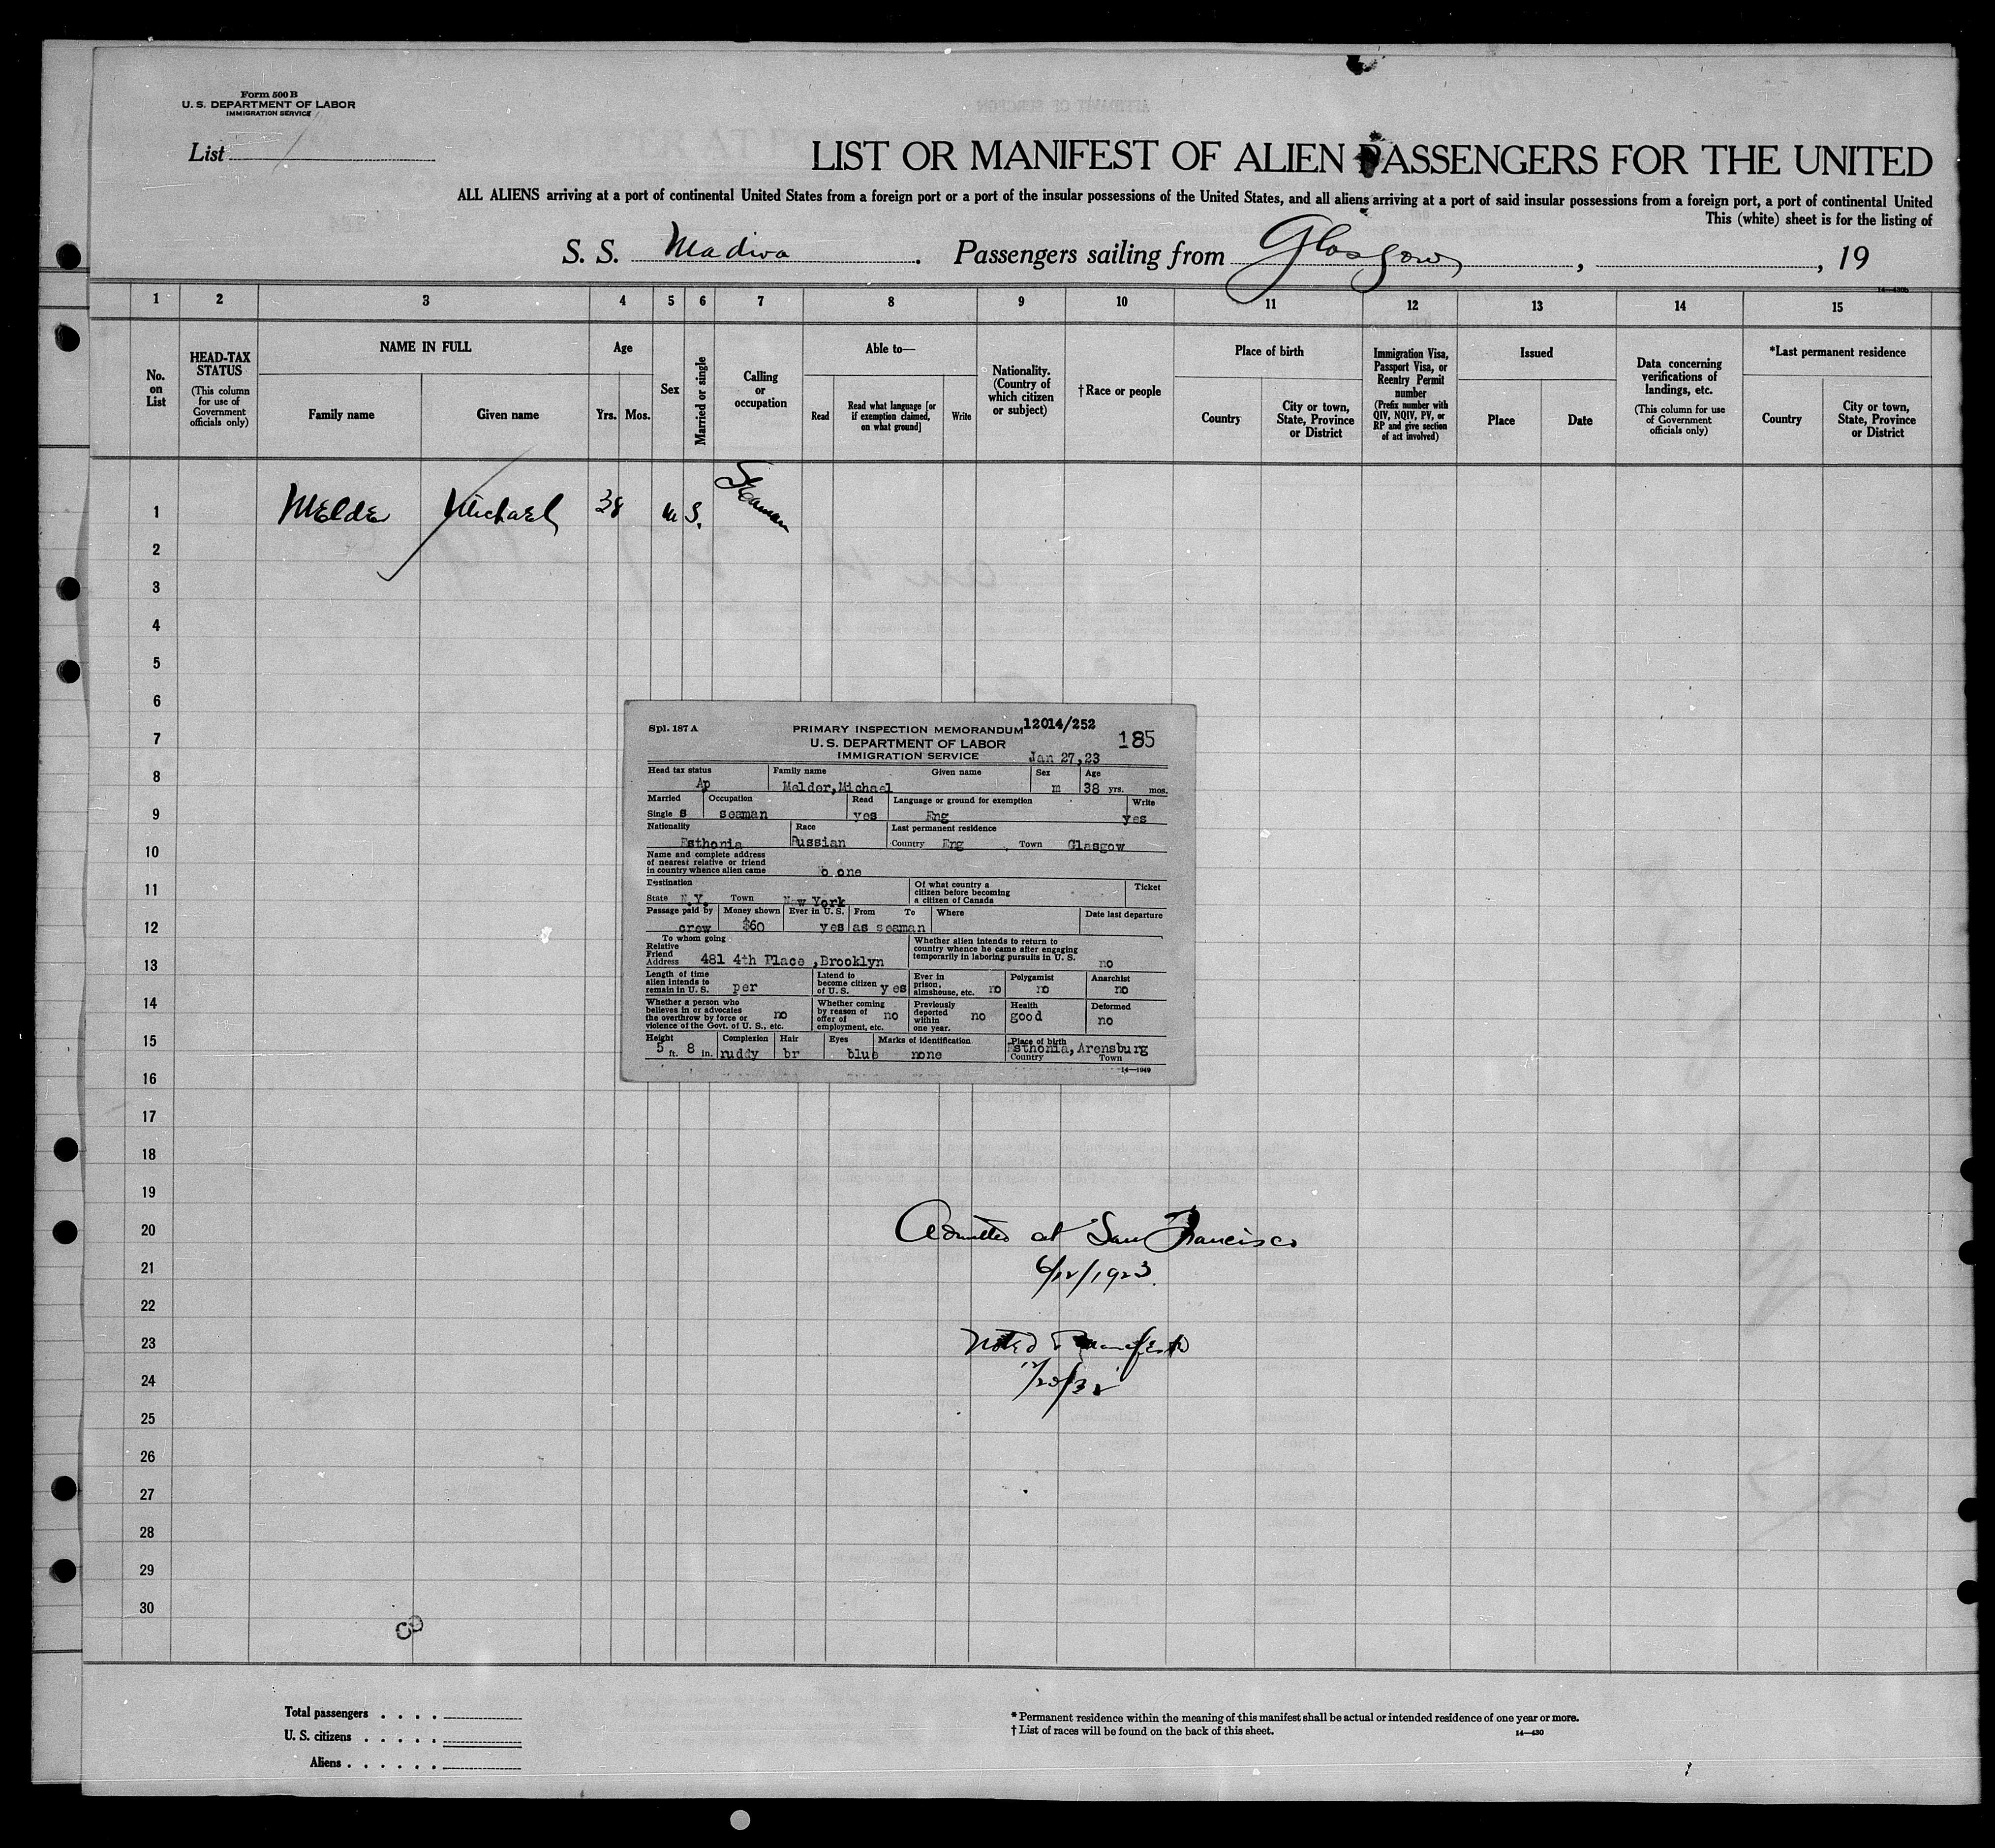 Form 500 B
U. S. DEPARTMENT OF LABOR
IMMIGRATION SERVICE
List 1
LIST OR MANIFEST OF ALIEN PASSENGERS FOR THE UNITED
ALL ALIENS arriving at a port of continental United States from a foreign port or a port of the insular possessions of the United States, and all aliens arriving at a port of said insular possessions from a foreign port, a port of continental United
This (white) sheet is for the listing of
S. S. Madiva. Passengers sailing from Glasgow, , 19
14—430b
1 2 3 4 5 6 7 8 9 10 11 12 13 14 15
No. on List
HEAD-TAX STATUS
(This column for use of Government officials only)
NAME IN FULL
Family name Given name
Age
Yrs. Mos.
Sex
Married or single
Calling or occupation
Able to—
Read
Read what language [or if exemption claimed, on what ground]
Write
Nationality. (Country of which citizen or subject)
†Race or people
Place of birth
Country
City or town, State, Province or District
Immigration Visa, Passport Visa, or Reentry Permit number
(Prefix number with QIV, NQIV, PV, or RP and give section of act involved)
Issued
Place Date
Data concerning verifications of landings, etc.
(This column for use of Government officials only)
*Last permanent residence
Country
City or town, State, Province or District
1 Melde Michael 38 M S. Seaman
2
3
4
5
6
7
8
9
10
11
12
13
14
15
16
17
18
19
20
21
22
23
24
25
26
27
28
29
30
Spl. 187 A
PRIMARY INSPECTION MEMORANDUM 12014/252
U. S. DEPARTMENT OF LABOR 185
IMMIGRATION SERVICE Jan 27,23
Head tax status Family name Given name Sex Age
Ap Melder,Michael m 38 yrs. mos.
Married Occupation Read Language or ground for exemption Write
Single S seaman yes Eng yes
Nationality Race Last permanent residence
Esthonia Russian Country Eng Town Glasgow
Name and complete address
of nearest relative or friend
in country whence alien came one
Destination Of what country a citizen before becoming a citizen of Canada Ticket
State N.Y. Town New York
Passage paid by Money shown Ever in U. S. From To Where Date last departure
crew $60 yes as seaman
To whom going
Relative
Friend
Address 481 4th Place ,Brooklyn
Whether alien intends to return to country whence he came after engaging temporarily in laboring pursuits in U. S. no
Length of time alien intends to remain in U. S. per
Intend to become citizen of U. S. yes
Ever in prison, almshouse, etc. no
Polygamist no
Anarchist no
Whether a person who believes in or advocates the overthrow by force or violence of the Govt. of U. S., etc. no
Whether coming by reason of offer of employment, etc. no
Previously deported within one year. no
Health good
Deformed no
Height Complexion Hair Eyes Marks of identification Place of birth
5 ft. 8 in. ruddy br blue none Esthonia, Arensburg
Country Town
14—1949
Admitted at San Francisco
6/12/1923.
Noted Manifest
12/20/32
Total passengers . . . .
U. S. citizens . . . . .
Aliens . . . . . .
* Permanent residence within the meaning of this manifest shall be actual or intended residence of one year or more.
† List of races will be found on the back of this sheet.
14—430